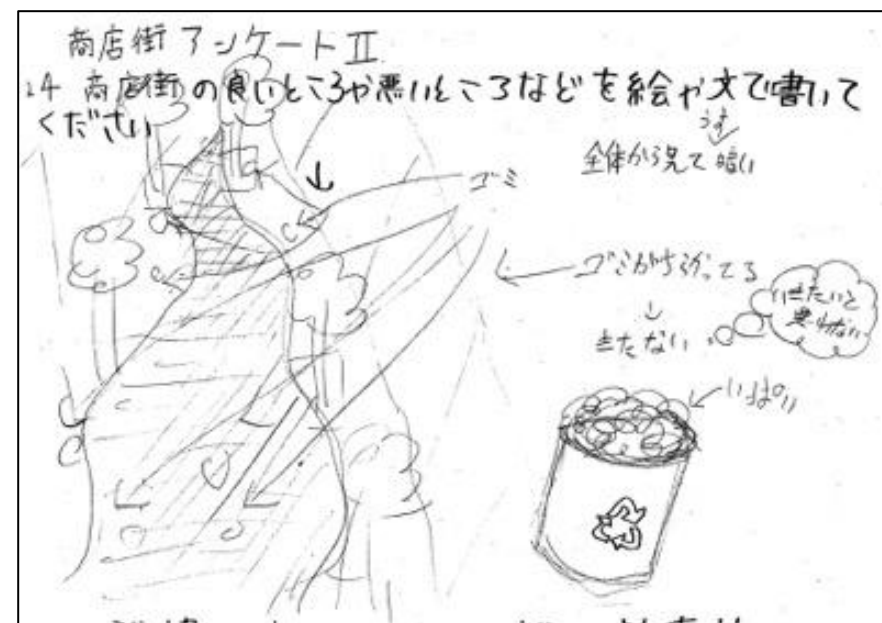 商店街アンケートⅡ
24 商店街の良いところや悪いところなどを絵や文で書いて
ください
うす
全体から見て暗い
ゴミ
ゴミがちらかってる
きたない
いきたいと
思わない
いっぱい